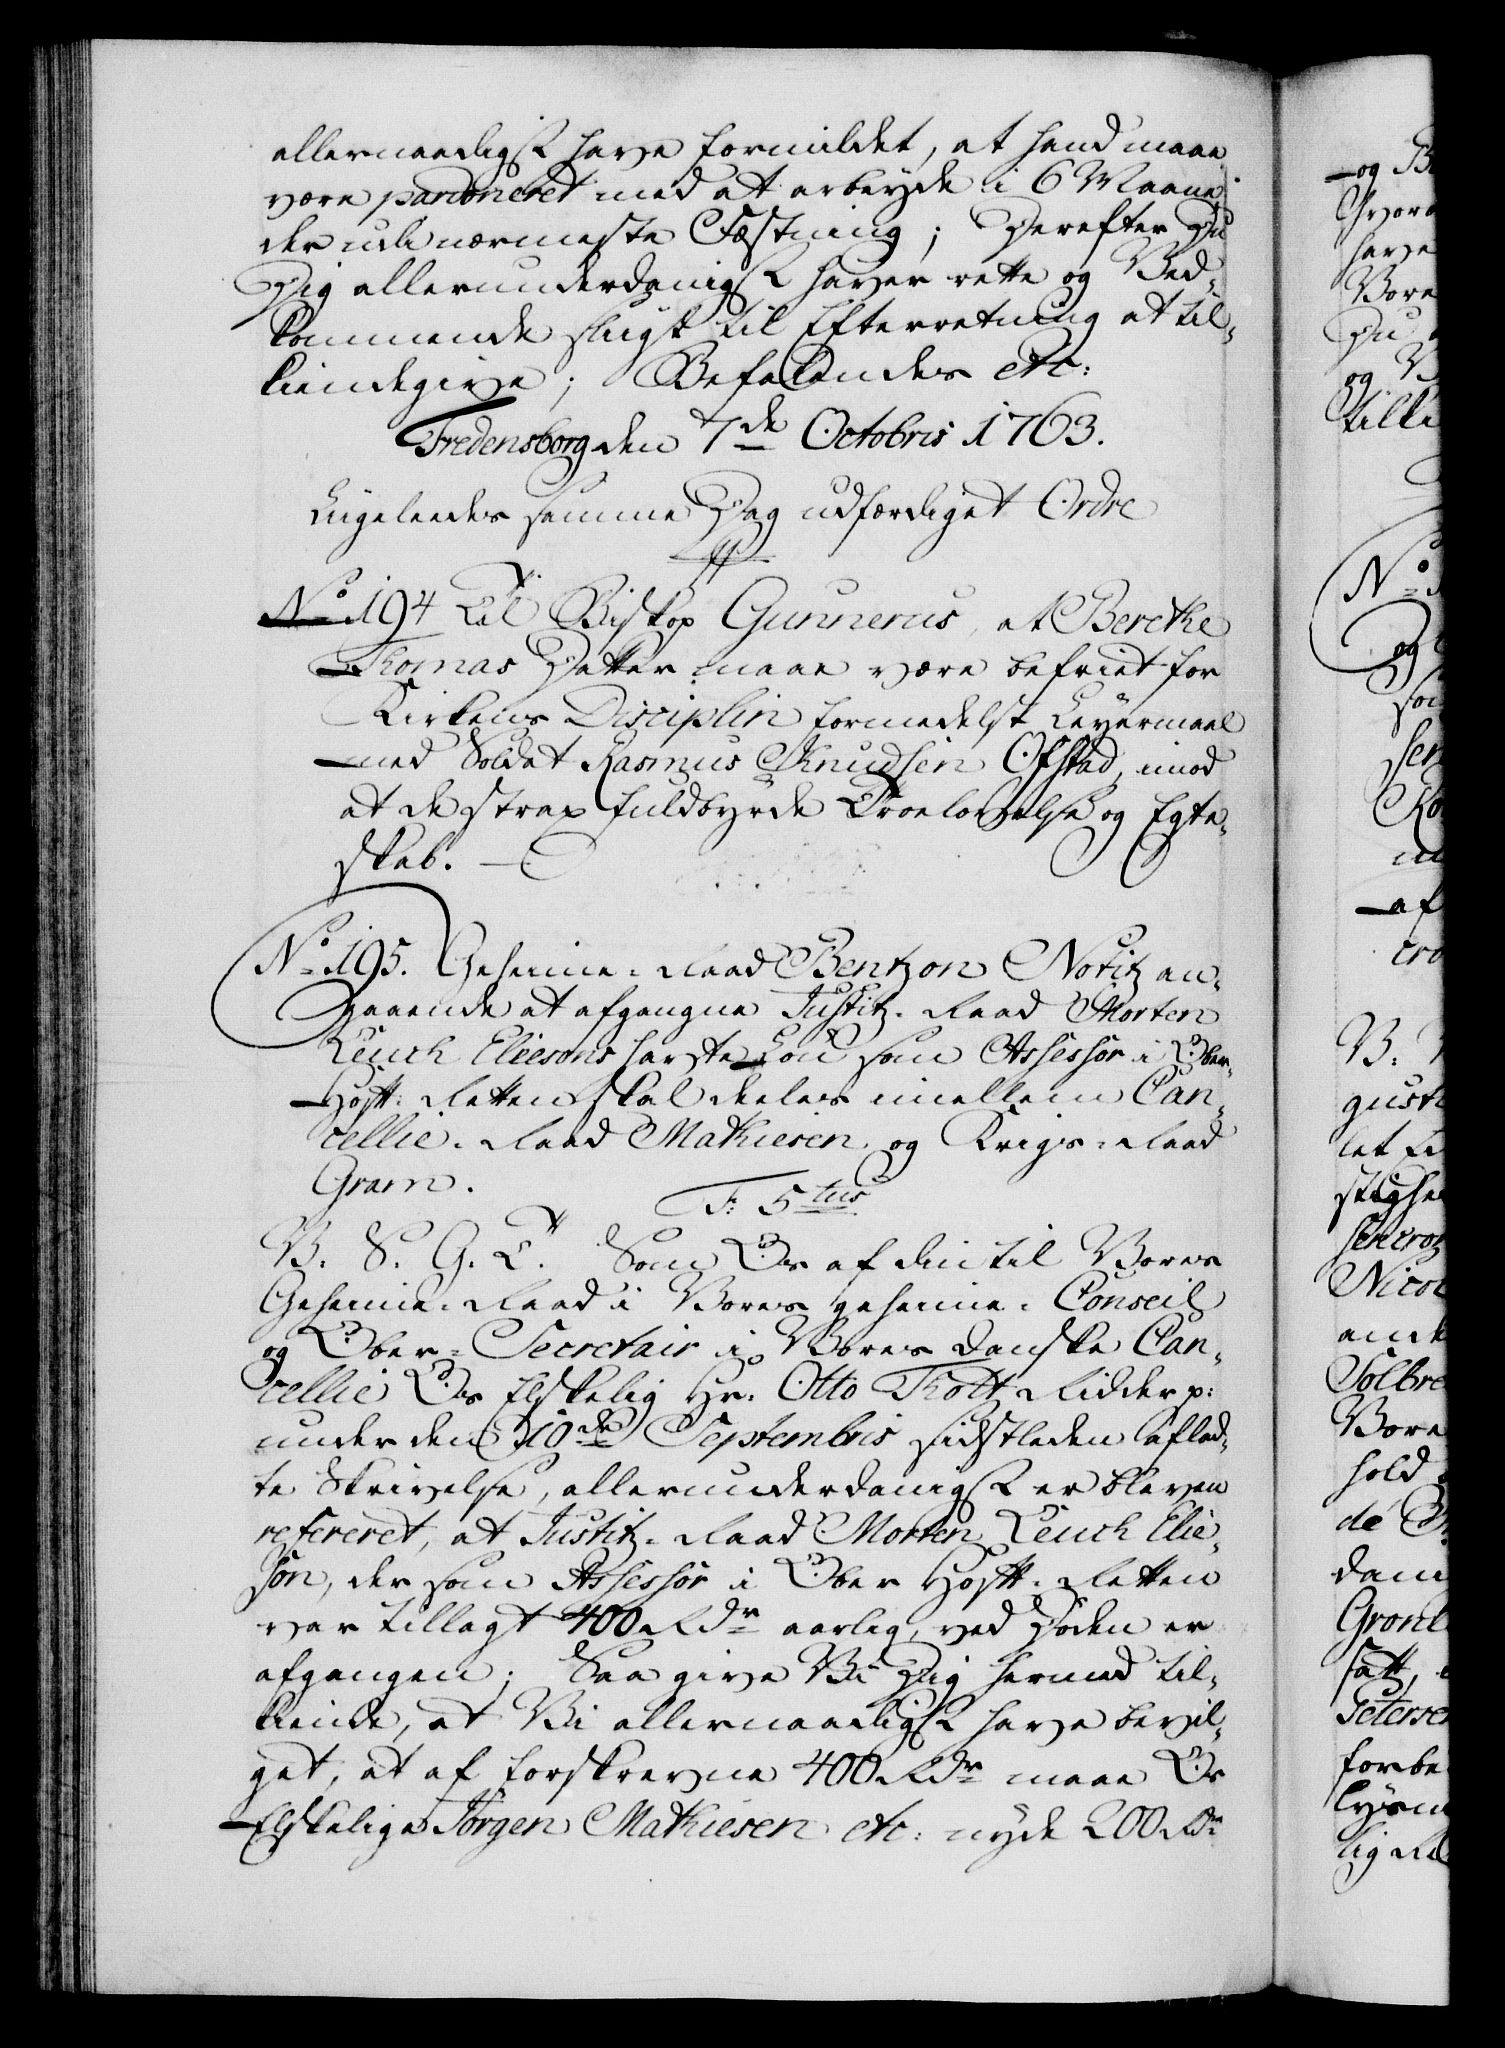 allernaadigst have formildet, at hand maae
være pardoneret med at arbeyde i 6 Maane-
der udi nærmeste Fæstning; Derefter Du
Dig allerunderdanigst haver rette og Ved-
kommende sligt til Efterretning at til-
kiendegive; Befalendes etc:
Fredensborg den 7de Octobris 1763.
Ligeledes samme Dag udfærdiget Ordre
No 194 Til Biskop Gunnerus, at Berethe
Thomas Datter maae være befriet for
Kirkens Disciplin formedelst Leyermaal
med Soldat Rasmus Knudsen Ofstad, imod
at de strax fuldbyrde Troelovelse og Egte-
skab.
No 195. Geheime-Raad Bentzon Notitz an-
gaaende at afgangne Justitz-Raad Morten
Leuch Eliesons havte Lön som Assessor i Ober-
Hoff-Retten skal deeles imellem Can-
cellie-Raad Mathiesen og Krigs-Raad
Gram.
F: 5tus
V. S. G. T. Som Os af din til Vores
Geheime-Raad i Vores geheime-Conseil
og Ober-Secretair i Vores danske Can-
cellie Os Elskelig Hr. Otto Thott Ridder p:
under den 10de Septembris sidstleden aflad-
te Skrivelse, allerunderdanigst er bleven
refereret, at Justitz-Raad Morten Leuch Elie-
son, der som Assessor i Ober Hoff-Retten
var tillagt 400 Rdr aarlig, ved Döden er
afgangen; Saa give Vi Dig hermed til-
kiende, at Vi allernaadigst have bevil-
get, at af forskrevne 400 Rdr maae Os
Elskelige Jörgen Mathiesen etc: nyde 200 Rdr